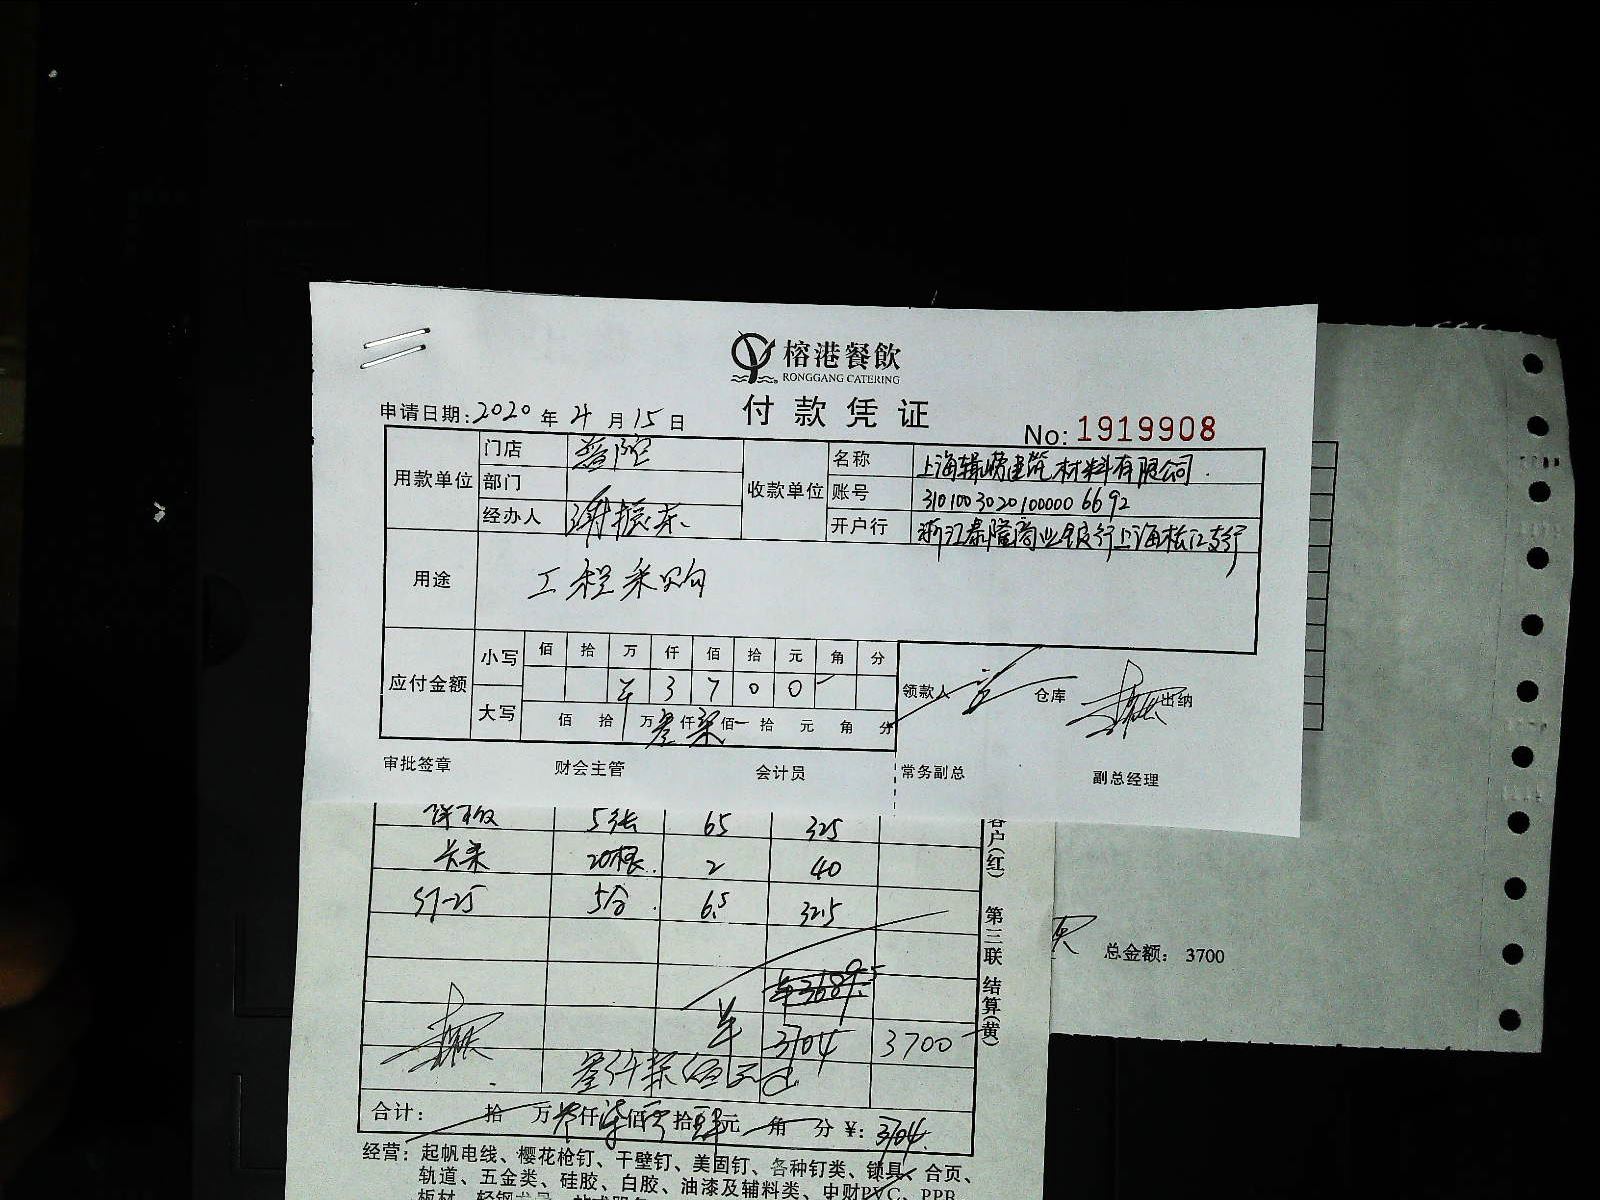 榕港餐飲
RONGGANG CATERING
付款凭证
申请日期: 2020 年 4 月 15 日
No: 1919908
用款单位 门店 普陀
部门
经办人 谢振东
收款单位 名称 上海辑嵘建筑材料有限公司
账号 3101003020100000 6692
开户行 浙江泰隆商业银行上海松江支行
用途 工程采购
应付金额 小写 佰 拾 万 仟 佰 拾 元 角 分
¥ 3 7 0 0
大写 佰 拾 万 叁 仟 柒 佰 拾 元 角 分
领款人 仓库 出纳
审批签章 财会主管 会计员 常务副总 副总经理
5张 65 325
20根 2 40
ST-25 5合 6.5 32.5
¥3689.5
¥ 3704 3700
叁仟柒佰元
合计: 拾 万 仟 佰 拾 元 角 分 ¥: 3704
客户(红) 第三联 结算(黄)
总金额: 3700
经营: 起帆电线、樱花枪钉、干壁钉、美固钉、各种钉类、锁具、合页、
轨道、五金类、硅胶、白胶、油漆及辅料类、中财PVC、PPR